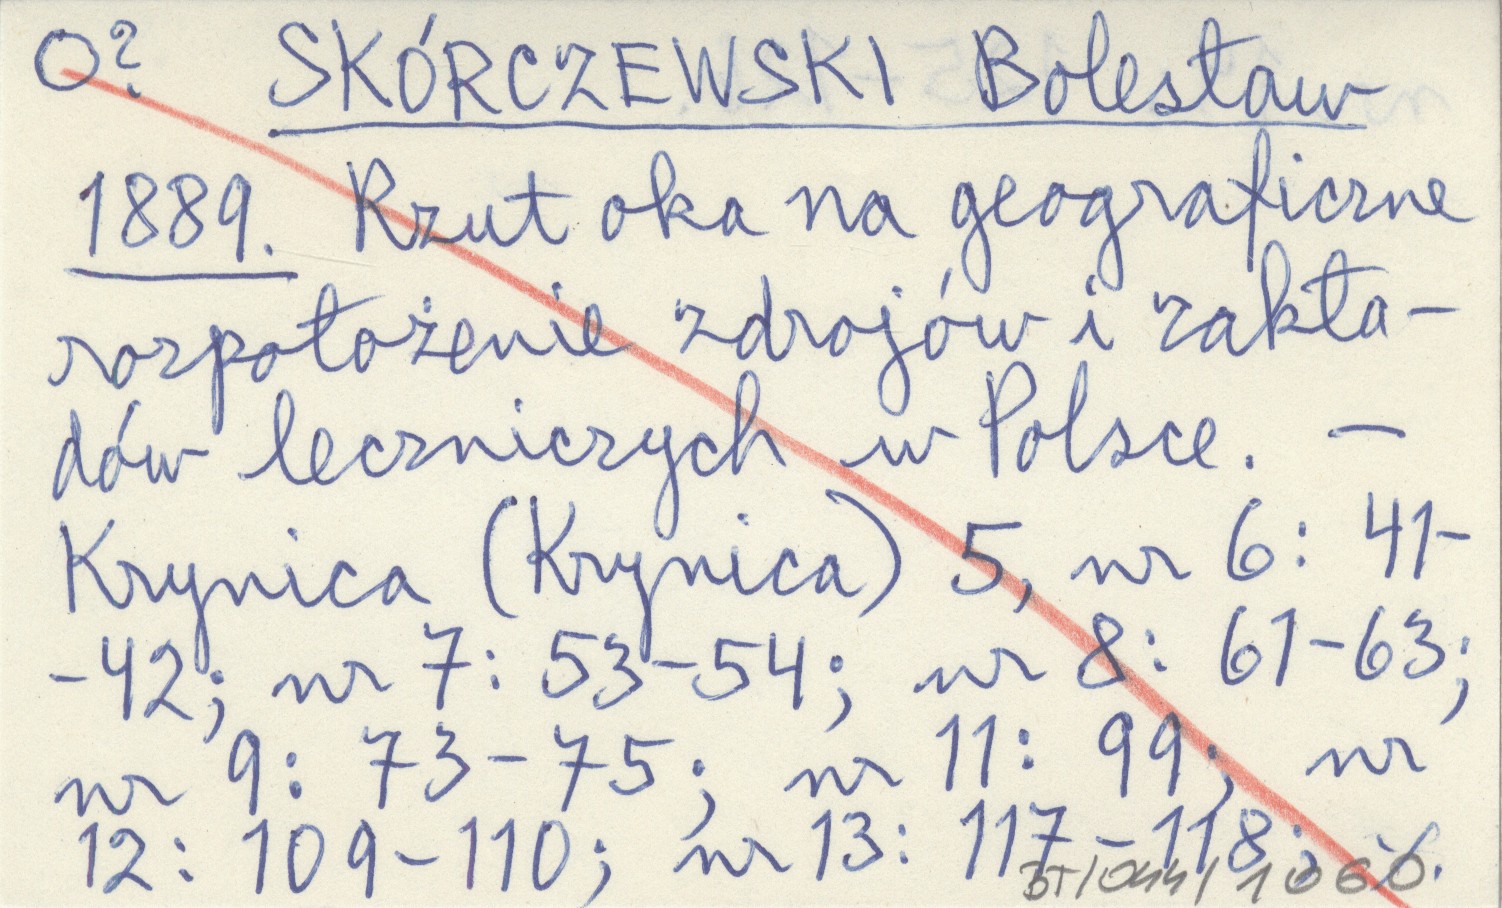 O? SKÓRCZEWSKI Bolesław
1889. Rzut oka na geograficzne
rozpołożenie zdrojów i zakła-
dów leczniczych w Polsce. —
Krynica (Krynica) 5, nr 6: 41-
-42; nr 7: 53-54; nr 8: 61-63;
nr 9: 73-75; nr 11: 99; nr
12: 109-110; nr 13: 117-118; ./.
BT/044/1060